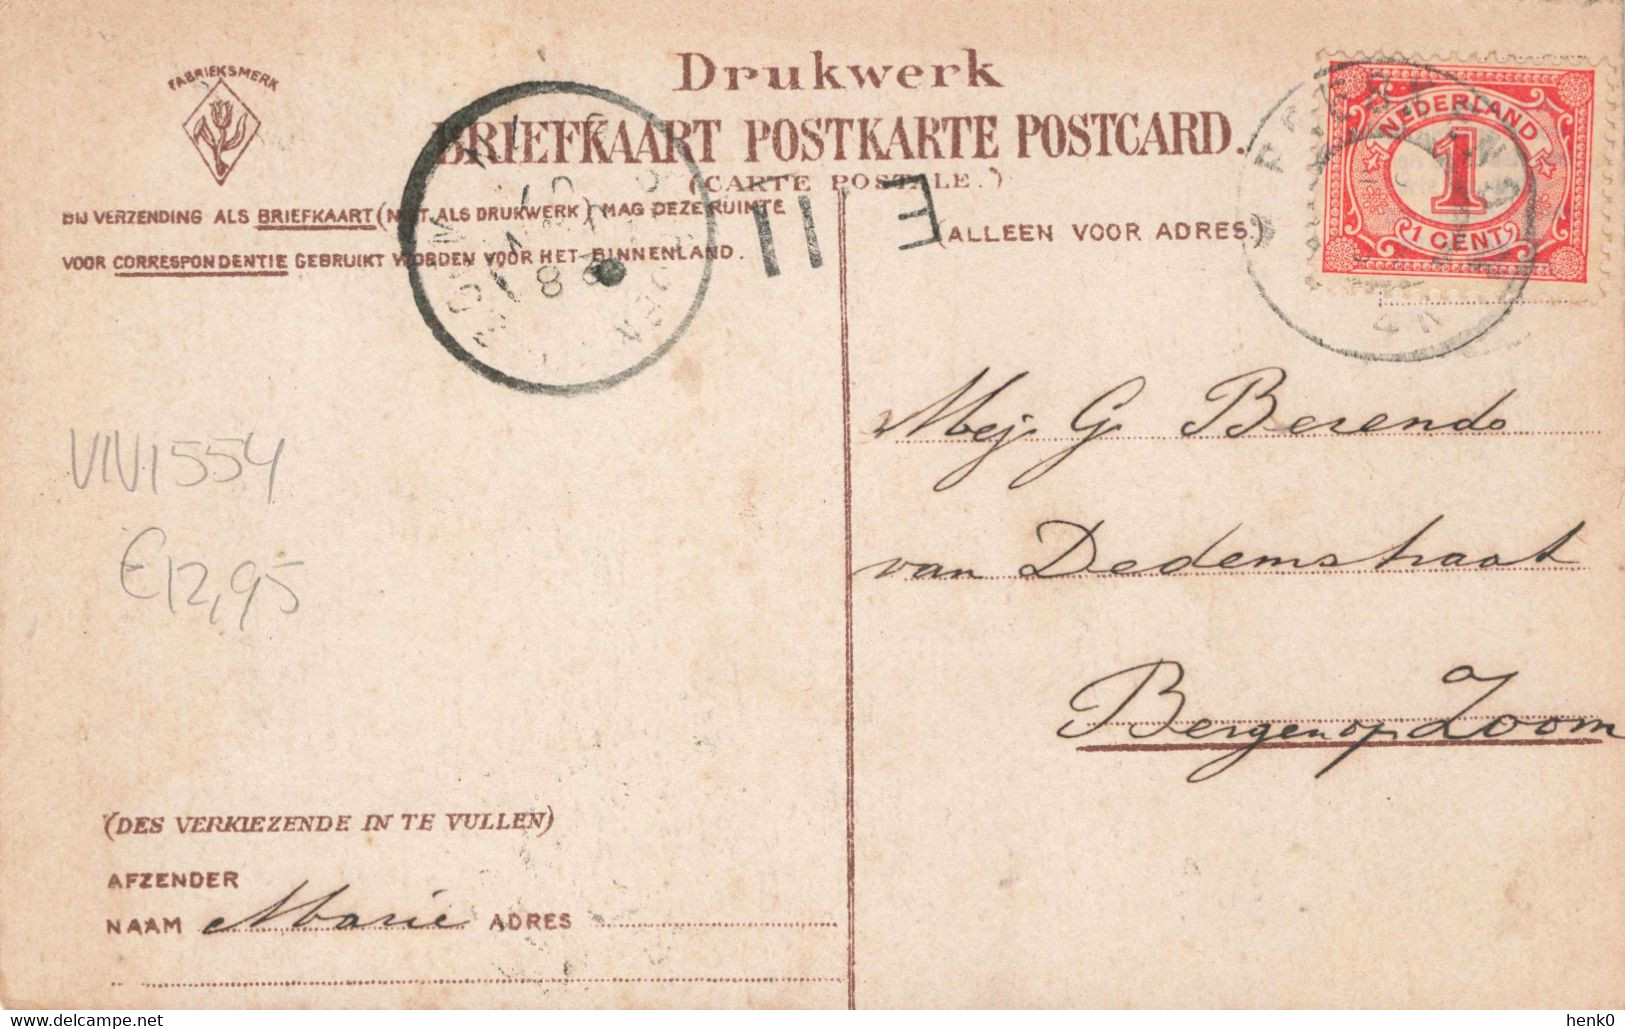 FABRIEKSMERK
Drukwerk
BRIEFKAART POSTKARTE POSTCARD.
(CARTE POSTALE.)
BIJ VERZENDING ALS BRIEFKAART (NIET ALS DRUKWERK) MAG DEZE RUIMTE
VOOR CORRESPONDENTIE GEBRUIKT WORDEN VOOR HET BINNENLAND.
(ALLEEN VOOR ADRES)
NEDERLAND
1
1 CENT
Mej. G. Berends
van Dedemstraat
Bergen op Zoom
VIV1554
€12,95
(DES VERKIEZENDE IN TE VULLEN)
AFZENDER
NAAM Marie ADRES
www.delcampe.net
henk0